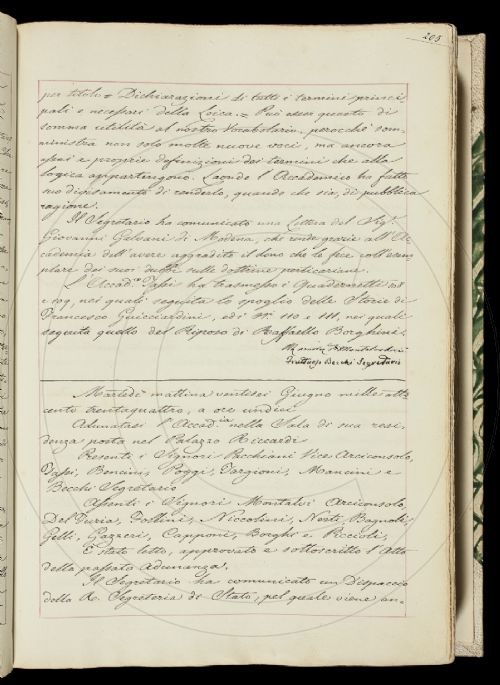 205
per titolo = Dichiarazioni di tutti i termini princi-
pali e necessarj della Loica. = Può esser questo di
somma utilità al nostro Vocabolario, perocchè som-
ministra non solo molte nuove voci, ma ancora
assai e proprie definizioni dei termini che alla
logica appartengono. Laonde l'Accademico ha fatto
suo divisamento di renderlo, quando che sia, di pubblica
ragione.
Il Segretario ha comunicato una Lettera del Sigr.
Giovanni Galvani di Modena, che rende grazie all'Ac-
cademia dell'avere aggradito il dono che le fece coll'esem-
plare dei suoi dubbi sulle dottrine perticariane.
L'Accad.co Tassi ha trasmesso i Quadernetti 108
e 109, nei quali seguita lo spoglio delle Storie di
Francesco Guicciardini, ed i Ni. 110 e 111, nei quali
seguita quello del Riposo di Raffaello Borghini.
Fruttuoso Becchi Segretario
Martedì mattina ventisei Giugno mille otto
cento trentaquattro, a ore undici
Adunatasi l'Accad.ia nella Sala di sua resi-
denza posta nel Palazzo Riccardi
Presenti i Signori Rosini Vice Arciconsolo,
Tassi, Boncini, Poggi, Targioni, Mancini e
Becchi Segretario
Assenti i Signori Montalvi Arciconsolo,
Del Furia, Follini, Niccolini, Nesti, Bagnoli,
Gelli, Gazzeri, Capponi, Borghi e Puccioli,
È stato letto, approvato e sottoscritto l'Atto
della passata Adunanza.
Il Segretario ha comunicato un Dispaccio
della R. Segreteria di Stato, pel quale viene an-